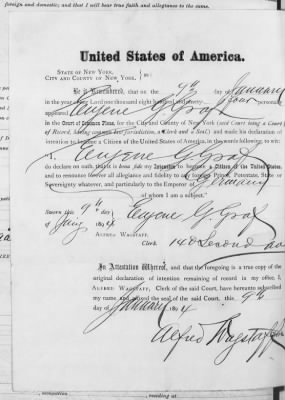 foreign and domestic; and that I will bear true faith and allegiance to the same.
United States of America.
STATE OF NEW YORK,
CITY AND COUNTY OF NEW YORK, } ss:
Be it Remembered, that on the 9th day of January
in the year of our Lord one thousand eight hundred and ninety four personally
appeared Eugene G. Graf
in the Court of Common Pleas, for the City and County of New York (said Court being a Court
of Record, having common law jurisdiction, a Clerk and a Seal) and made his declaration
of intention to become a Citizen of the United States, in the words following, to wit:
I, Eugene G. Graf
do declare on oath, that it is bona fide my intention to become a Citizen of the United States,
and to renounce forever all allegiance and fidelity to any foreign Prince, Potentate, State or
Sovereignty whatever, and particularly to the Emperor of Germany
of whom I am a subject.
Sworn this 9th day
of Jany 1894 Eugene G. Graf
ALFRED WAGSTAFF,
Clerk. Second
In Attestation Whereof, and that the foregoing is a true copy of the
original declaration of intention remaining of record in my office, I,
ALFRED WAGSTAFF, Clerk of the said Court, have hereunto subscribed
my name and affixed the seal of the said Court, this 9th
day of January 1894
Alfred Wagstaff
occupation
residing at